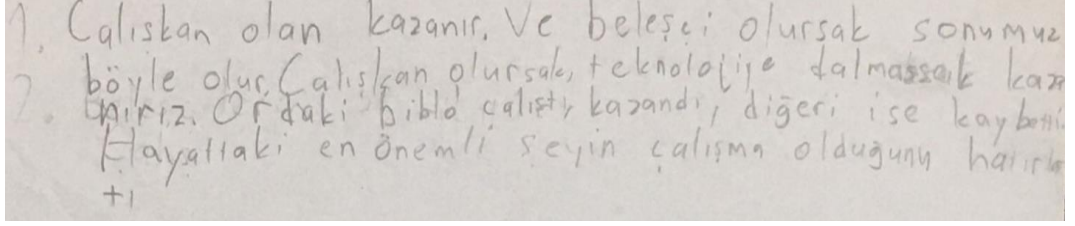 1. Calıskan olan kazanır. Ve beleşçi olursak sonumuz
böyle olur. Calışkan olursak, teknolojiye dalmassak kaza
2. nırız. Ordaki biblo çalıştı, kazandı, diğeri ise kaybetti.
Hayattaki en önemli seyin çalışma olduğunu hatırla
+1